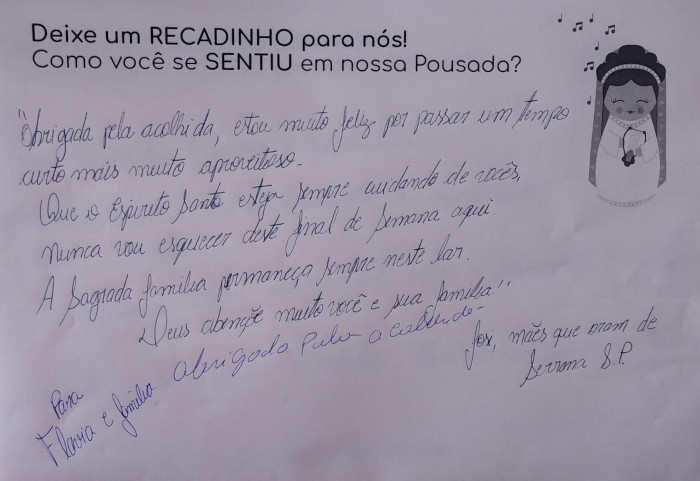 Deixe um RECADINHO para nós!
Como você se SENTIU em nossa Pousada?
"Obrigada pela acolhida, estou muito feliz por passar um tempo
curto mais muito aproveitoso.
Que o Espirito Santo esteja sempre cuidando de vocês,
nunca vou esquecer deste final de semana aqui.
A Sagrada família permaneça sempre neste lar.
Deus abençõe muito você e sua família!"
Obrigado pela a
Josi, mães que oram de
Serrana S.P.
Para
Flavia e família